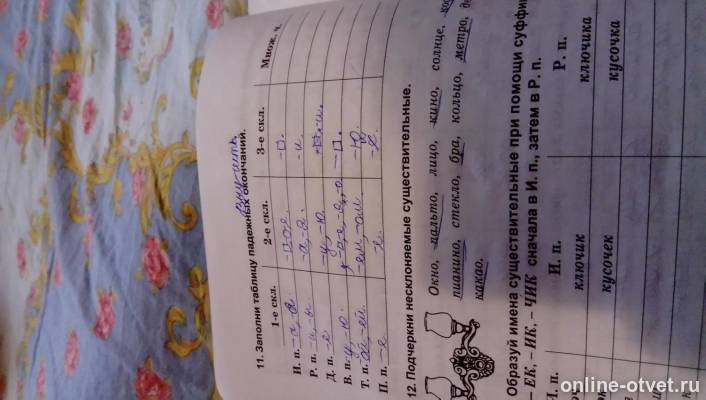 выучить
11. Заполни таблицу падежных окончаний.
1-е скл. 2-е скл. 3-е скл. Множ. ч.
И. п. -а, -я. -о, -е -□.
Р. п. -и, -ы -а, -я. -и.
Д. п. -е -у, -ю -и.
В. п. -у, -ю. -□.
Т. п. -ой -ей -ем, -ом -ю.
П. п. -е -е.
12. Подчеркни несклоняемые существительные.
Окно, пальто, лицо, кино, солнце,
пианино, стекло, бра, кольцо, метро,
какао.
Образуй имена существительные при помощи
– ЕК, – ИК, – ЧИК сначала в И. п., затем в Р. п.
И. п. И. п. Р. п.
ключик ключика
кусочек кусочка
online-otvet.ru